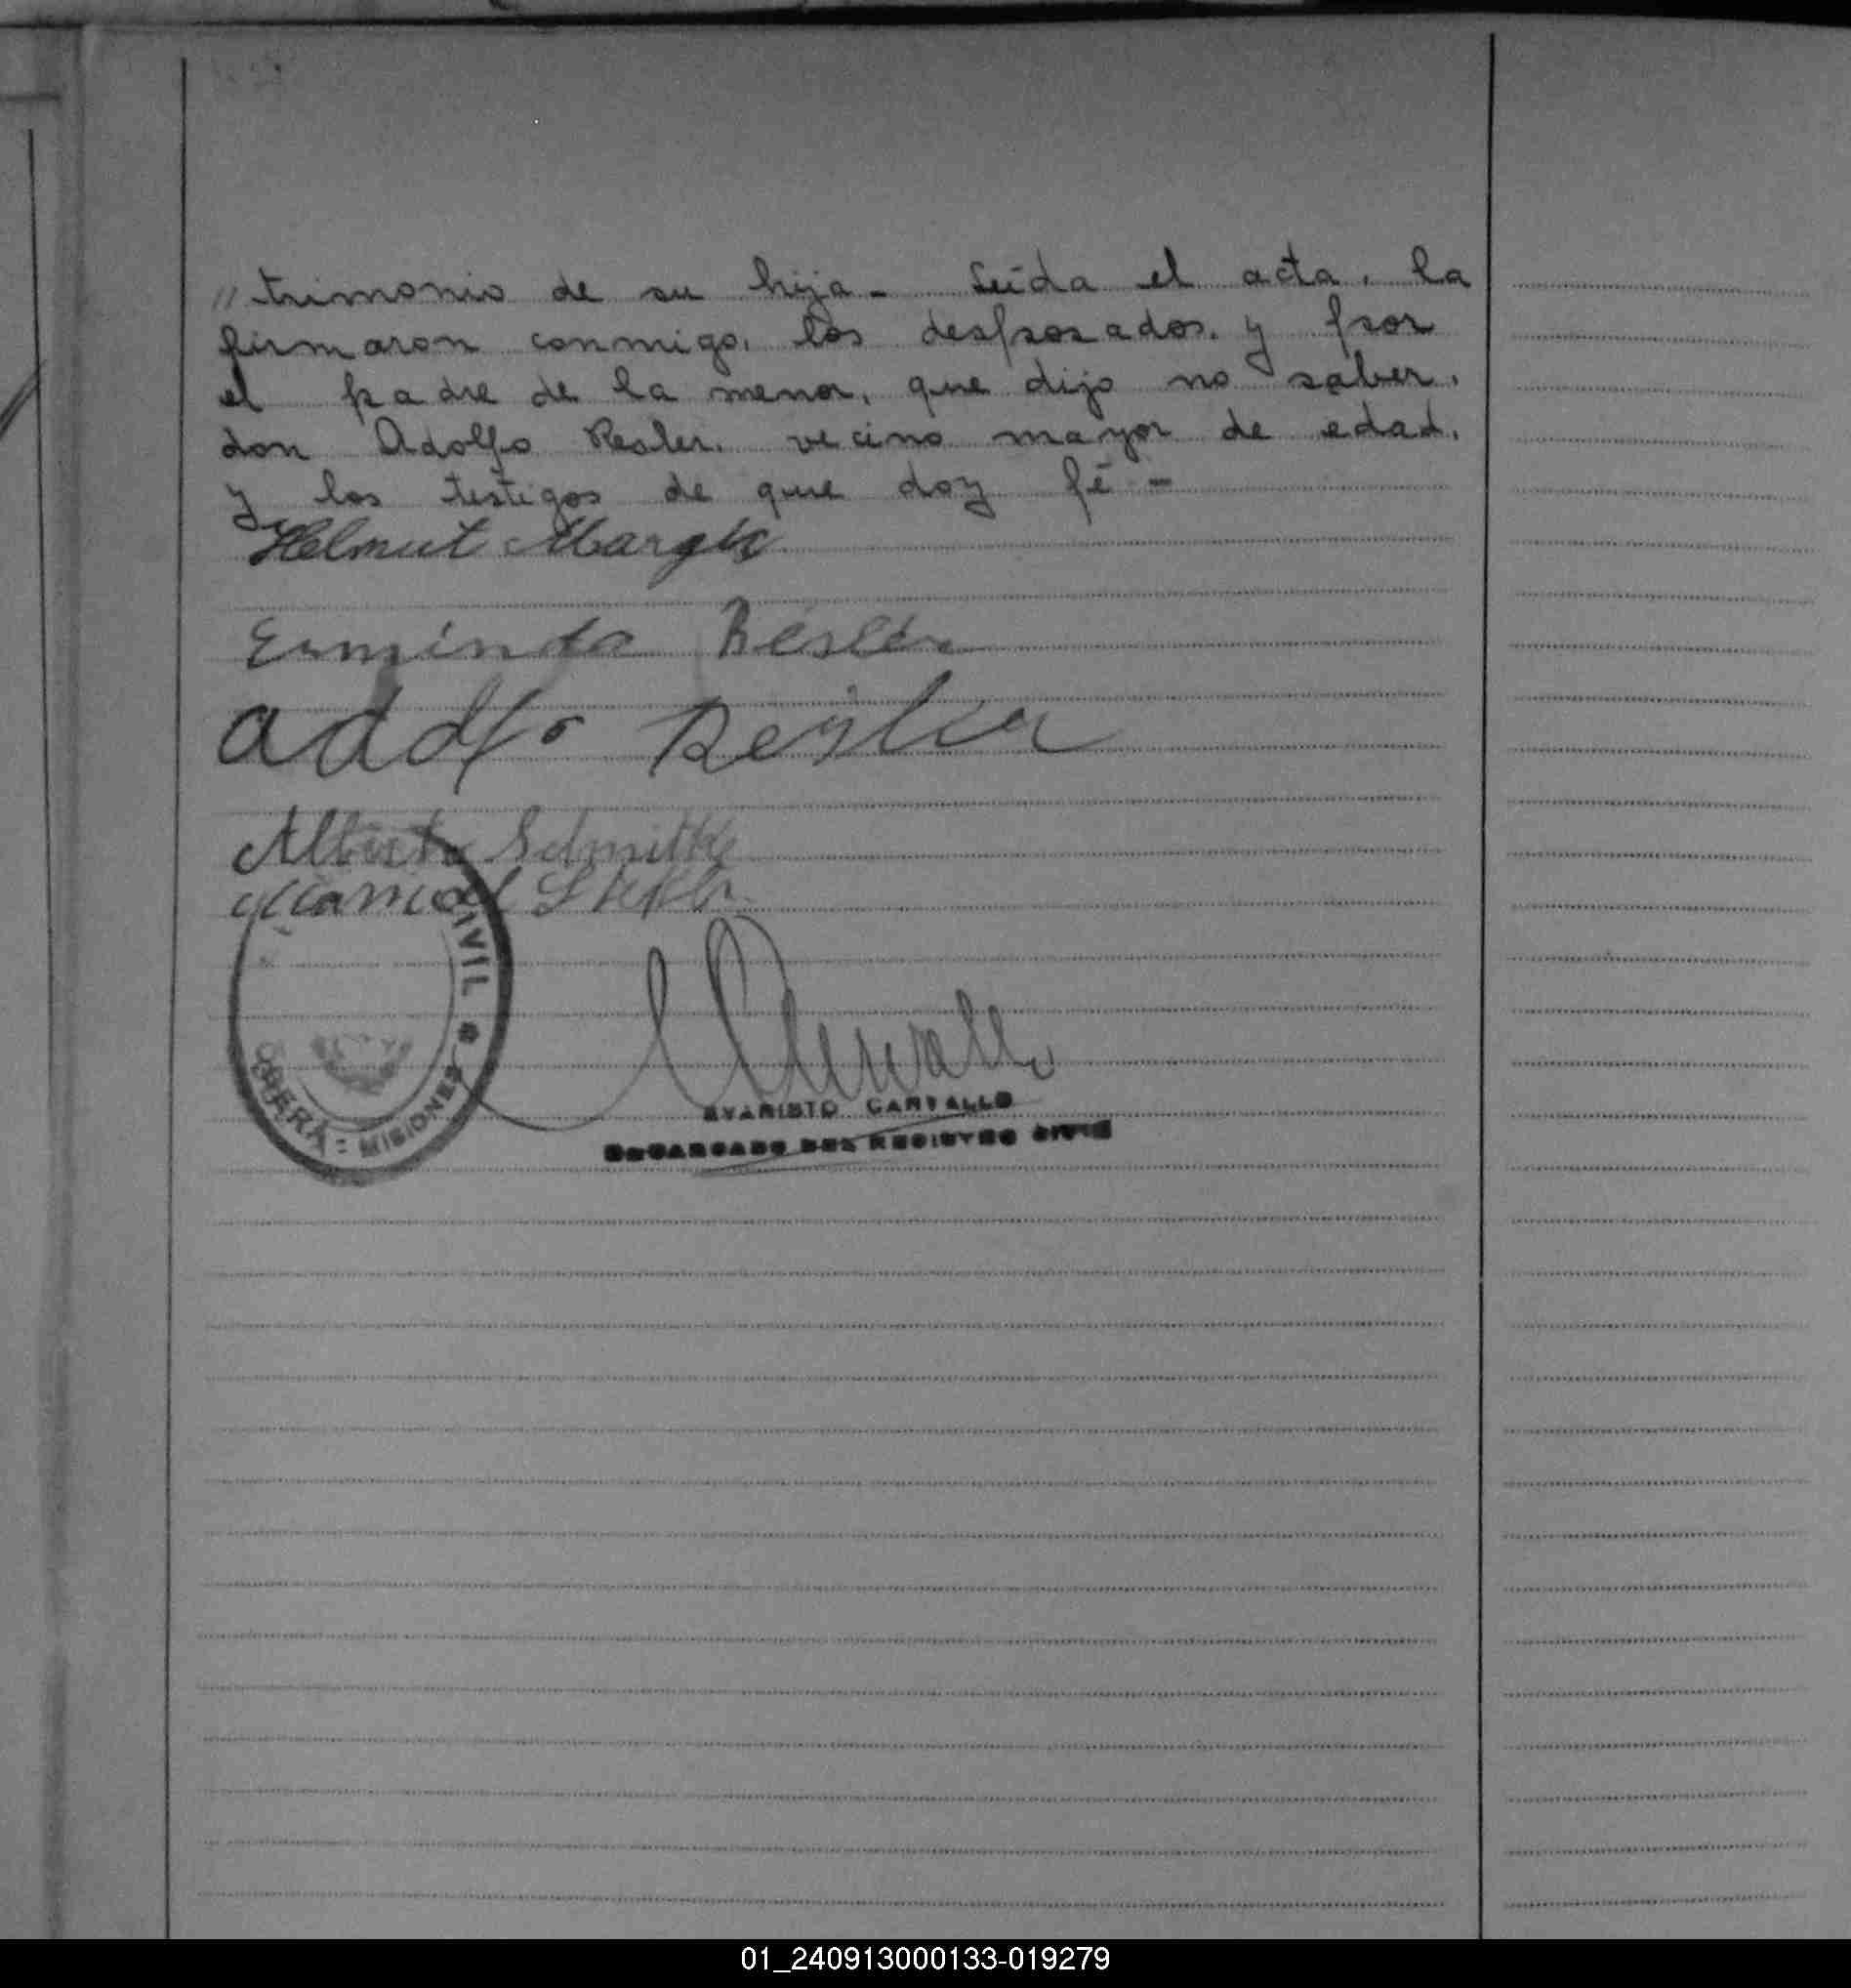 " trimonio de su hija - Leída el acta, la
firmaron conmigo, los desposados, y por
el padre de la menor, que dijo no saber,
don Adolfo Resler, vecino mayor de edad,
y los testigos de que doy fé -
Helmut
Erminda Resler
adolfo Resler
Alberto Schmittke
CIVIL
OBERÁ = MISIONES
EVARISTO CARVALLO
ENCARGADO DEL REGISTRO CIVIL
01_240913000133-019279